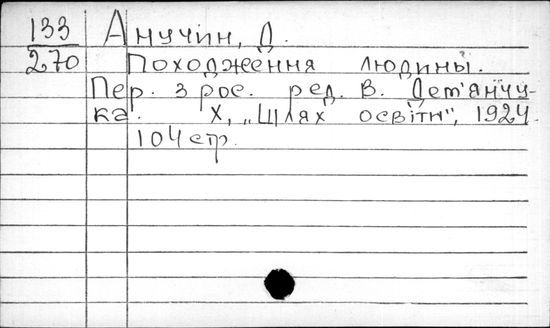 133 Анучин, Д.
270 Походження людины.
Пер. з рос. ред. В. Дем'янчу-
ка. Х, „Шлях освіти", 1924.
104 стр.